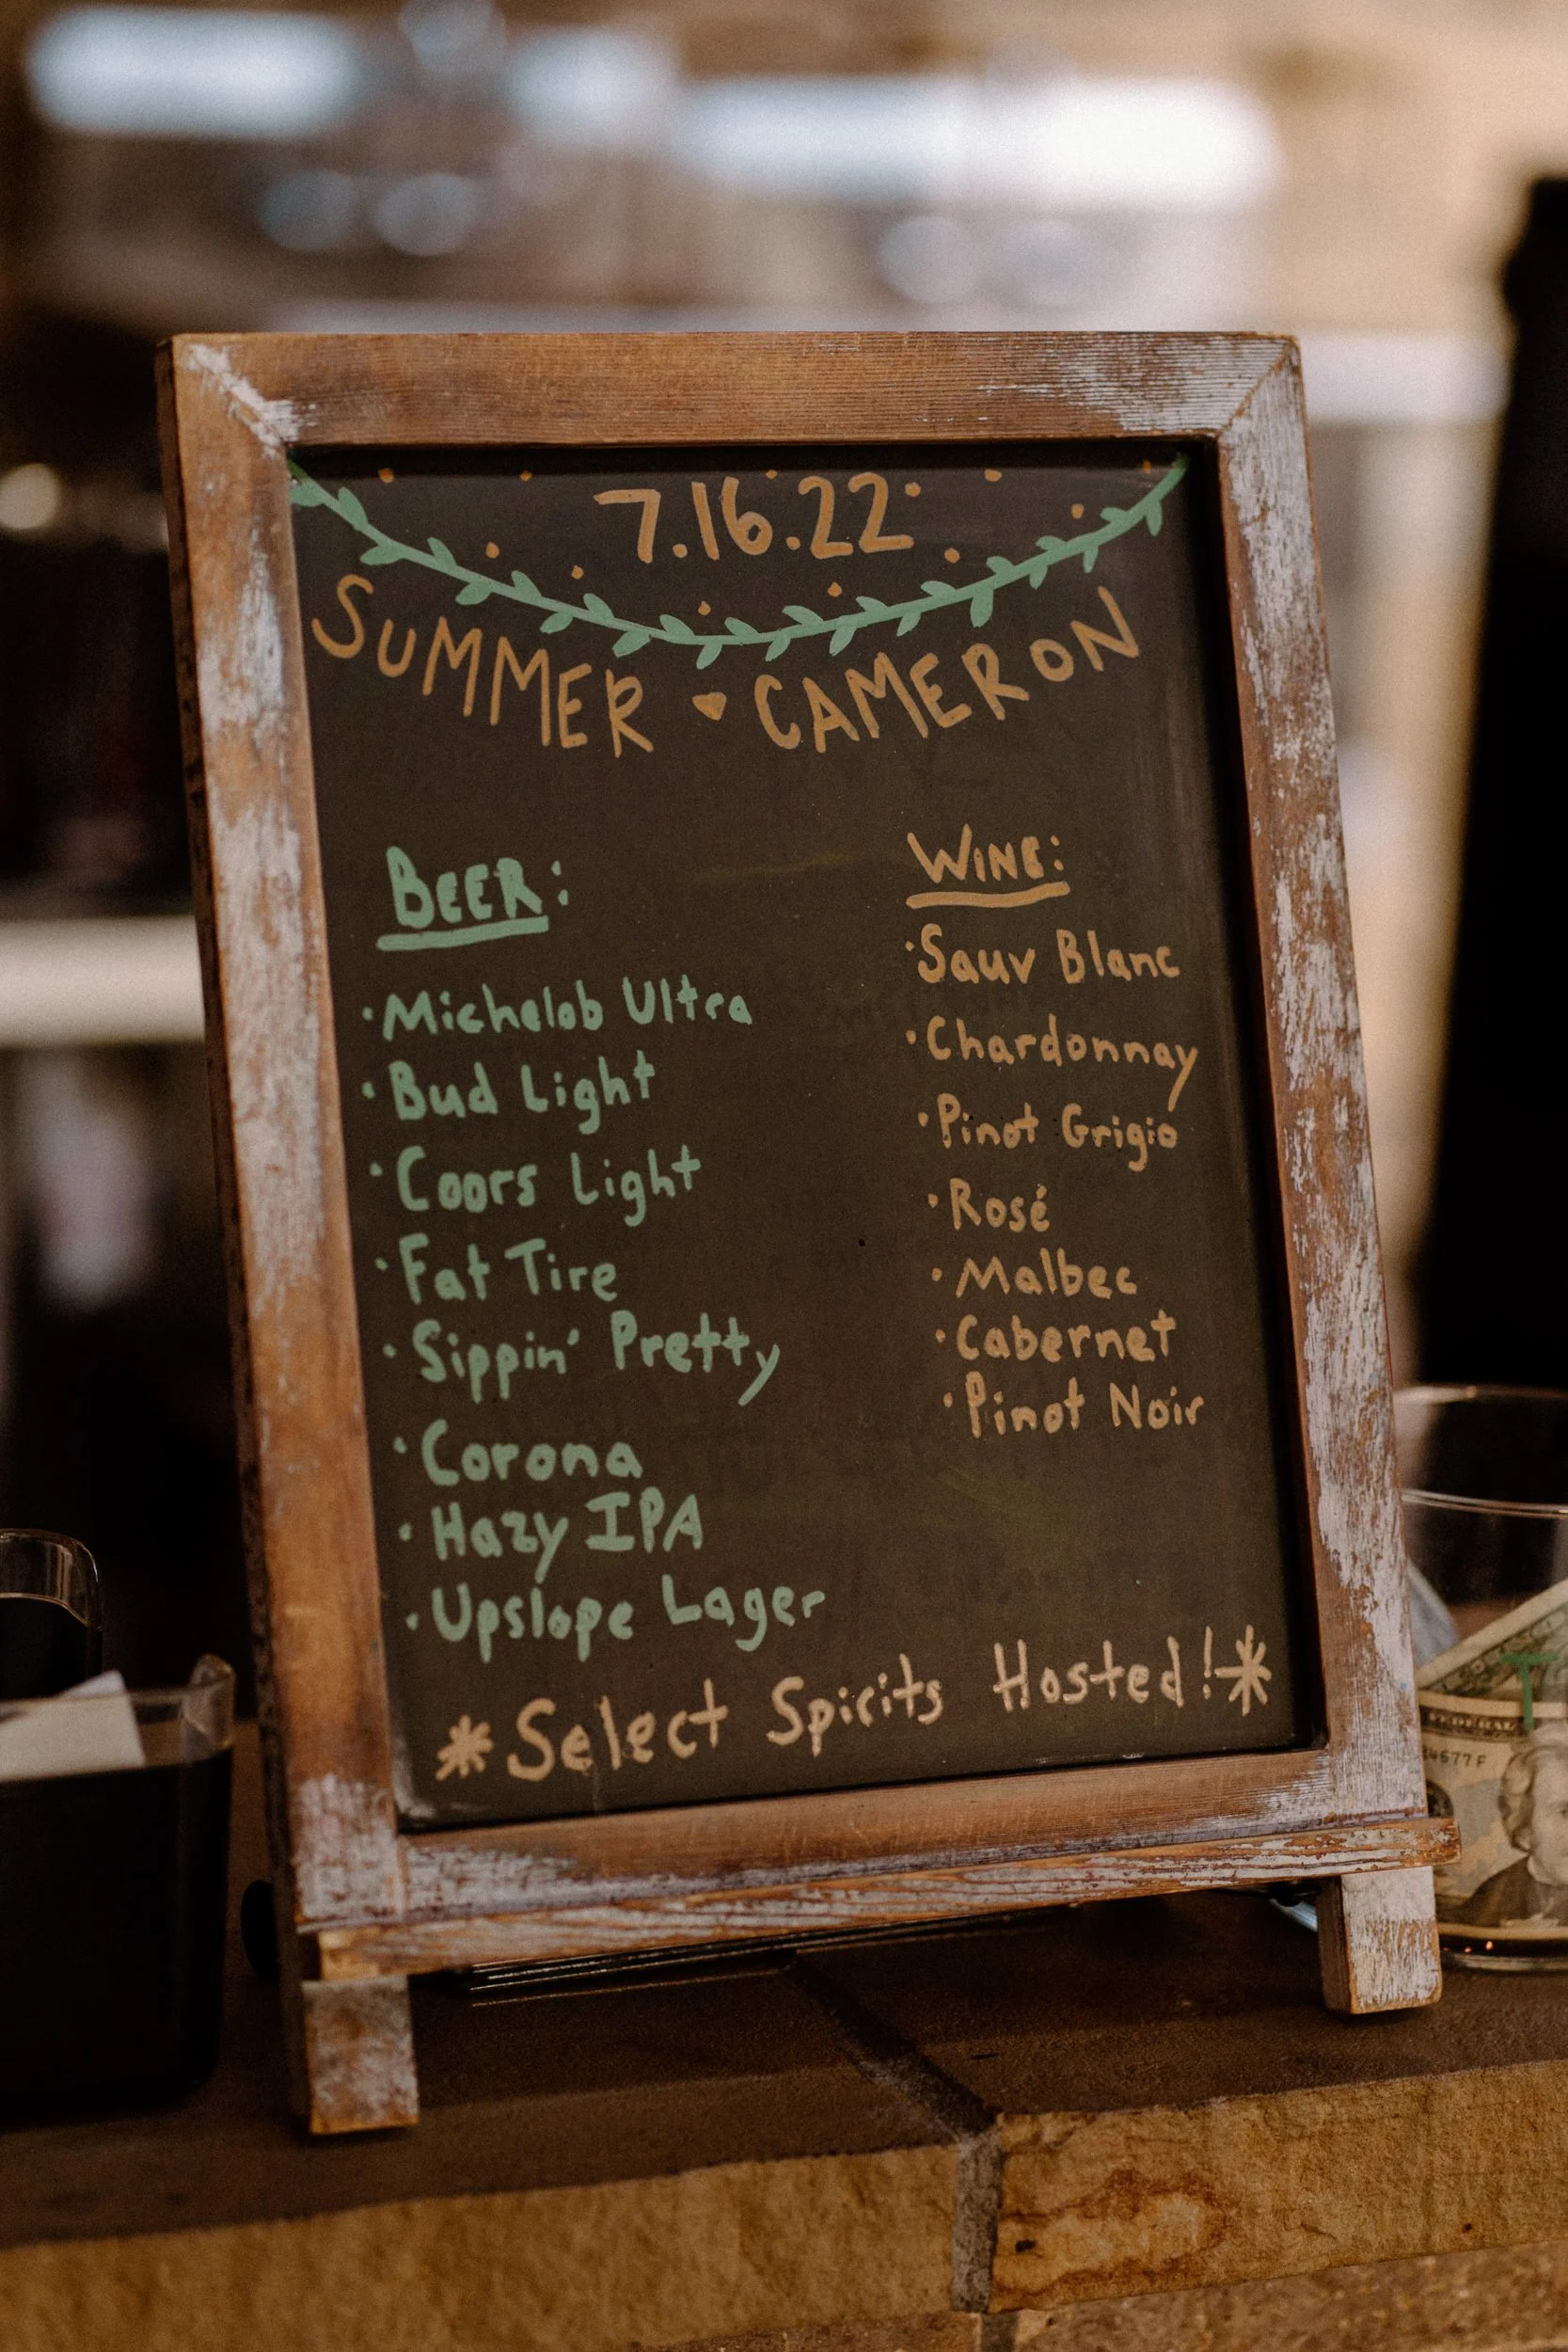 7.16.22
SUMMER ♥ CAMERON
BEER:
· Michelob Ultra
· Bud Light
· Coors Light
· Fat Tire
· Sippin' Pretty
· Corona
· Hazy IPA
· Upslope Lager
WINE:
· Sauv Blanc
· Chardonnay
· Pinot Grigio
· Rosé
· Malbec
· Cabernet
· Pinot Noir
* Select Spirits Hosted! *